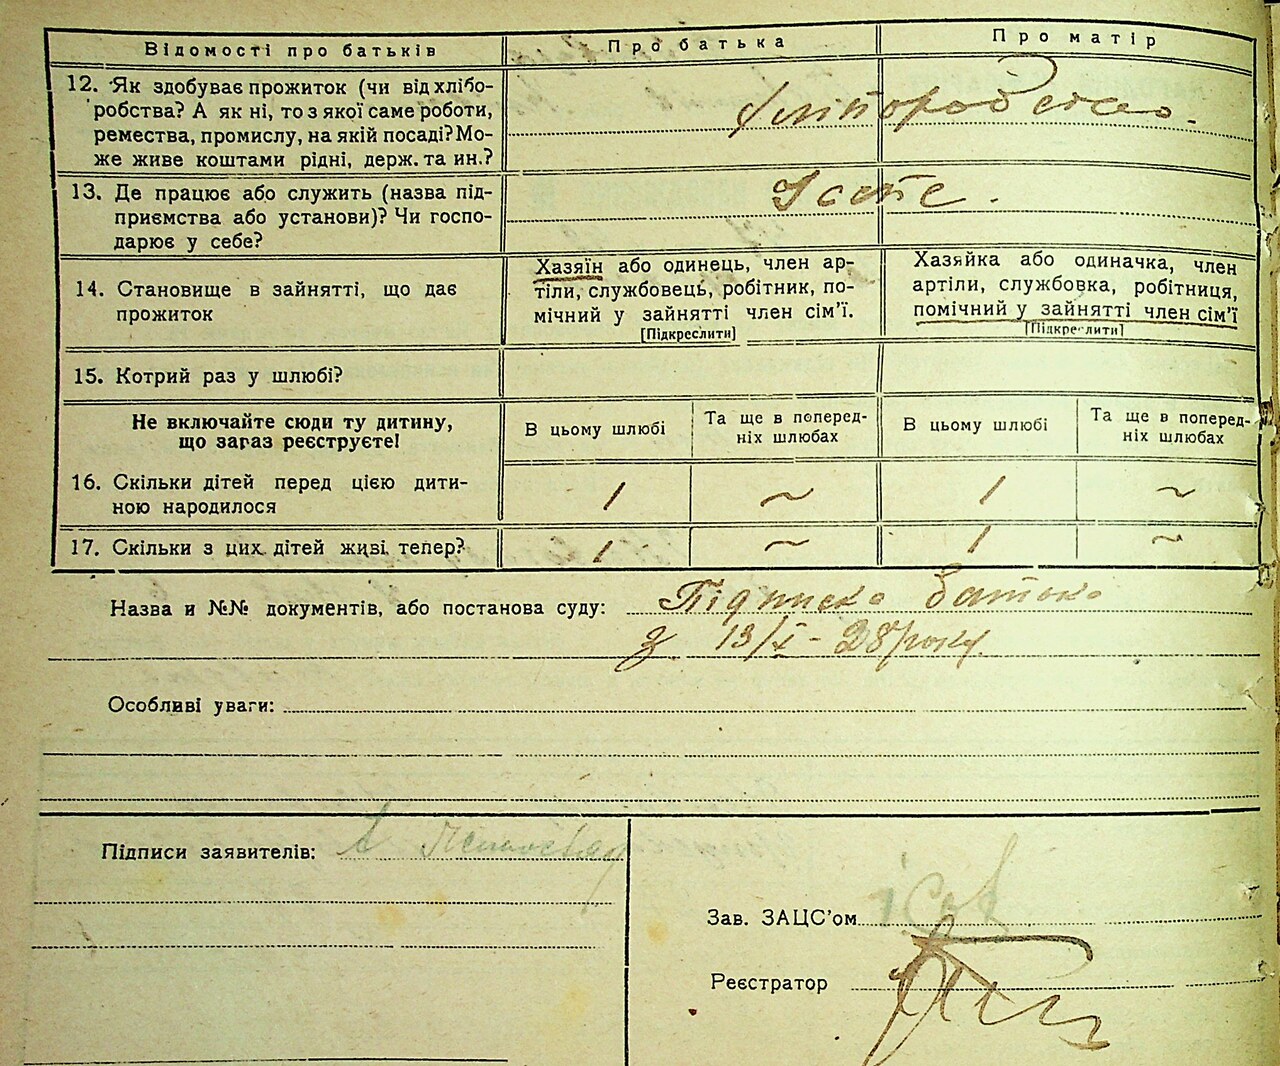 Відомості про батьків Про батька Про матір
12. Як здобуває прожиток (чи від хлібо-
робства? А як ні, то з якої саме роботи,
ремества, промислу, на якій посаді? Мо-
же живе коштами рідні, держ. та ин.?
13. Де працює або служить (назва під-
приємства або установи)? Чи госпо-
дарює у себе?
14. Становище в зайнятті, що дає
прожиток
Хазяїн або одинець, член ар-
тіли, службовець, робітник, по-
мічний у зайнятті член сім'ї.
[Підкреслити]
Хазяйка або одиначка, член
артіли, службовка, робітниця,
помічний у зайнятті член сім'ї
[Підкреслити]
15. Котрий раз у шлюбі?
Не включайте сюди ту дитину,
що зараз реєструєте!
В цьому шлюбі
Та ще в поперед-
ніх шлюбах
В цьому шлюбі
Та ще в поперед-
ніх шлюбах
16. Скільки дітей перед цією дити-
ною народилося
1 ~ 1 ~
17. Скільки з цих дітей живі тепер? 1 ~ 1 ~
Назва и №№ документів, або постанова суду: Підписка батька
з 13/X - 28 року
Особливі уваги:
Підписи заявителів:
Зав. ЗАЦС'ом
Реєстратор